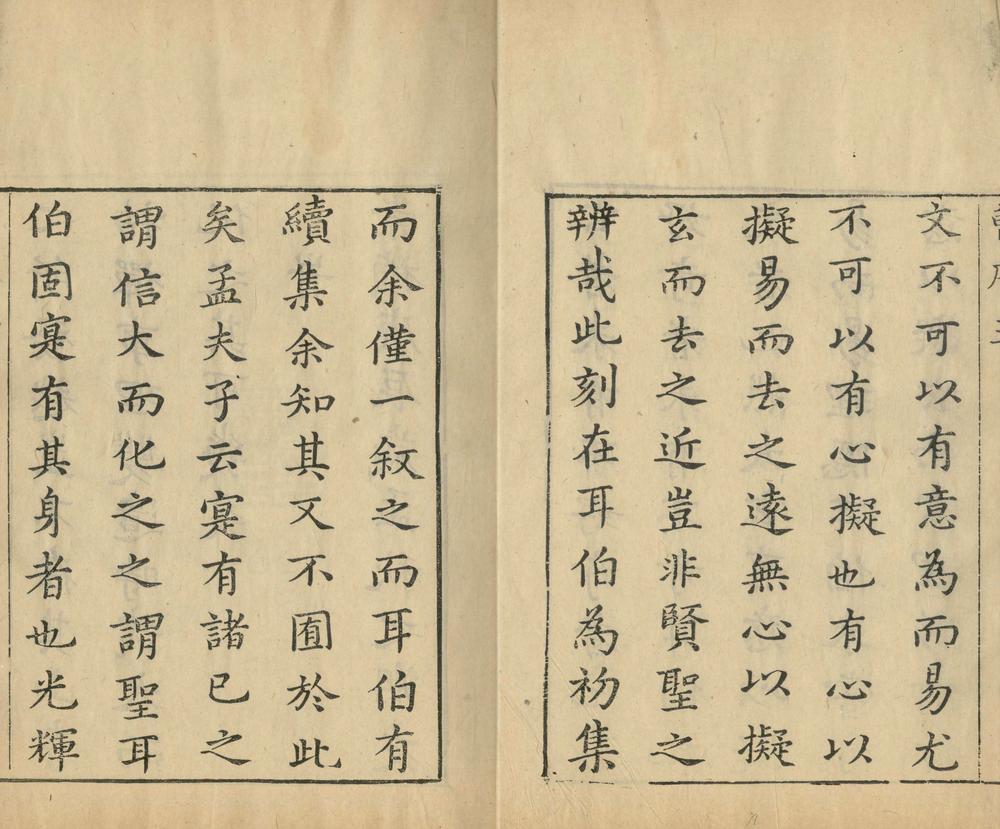 文不可以有意為而易尤
不可以有心擬也有心以
擬易而去之遠無心以擬
玄而去之近豈非賢聖之
辨哉此刻在耳伯為初集
而余僅一敘之而耳伯有
續集余知其又不囿於此
矣孟夫子云寔有諸已之
謂信大而化之之謂聖耳
伯固寔有其身者也光輝